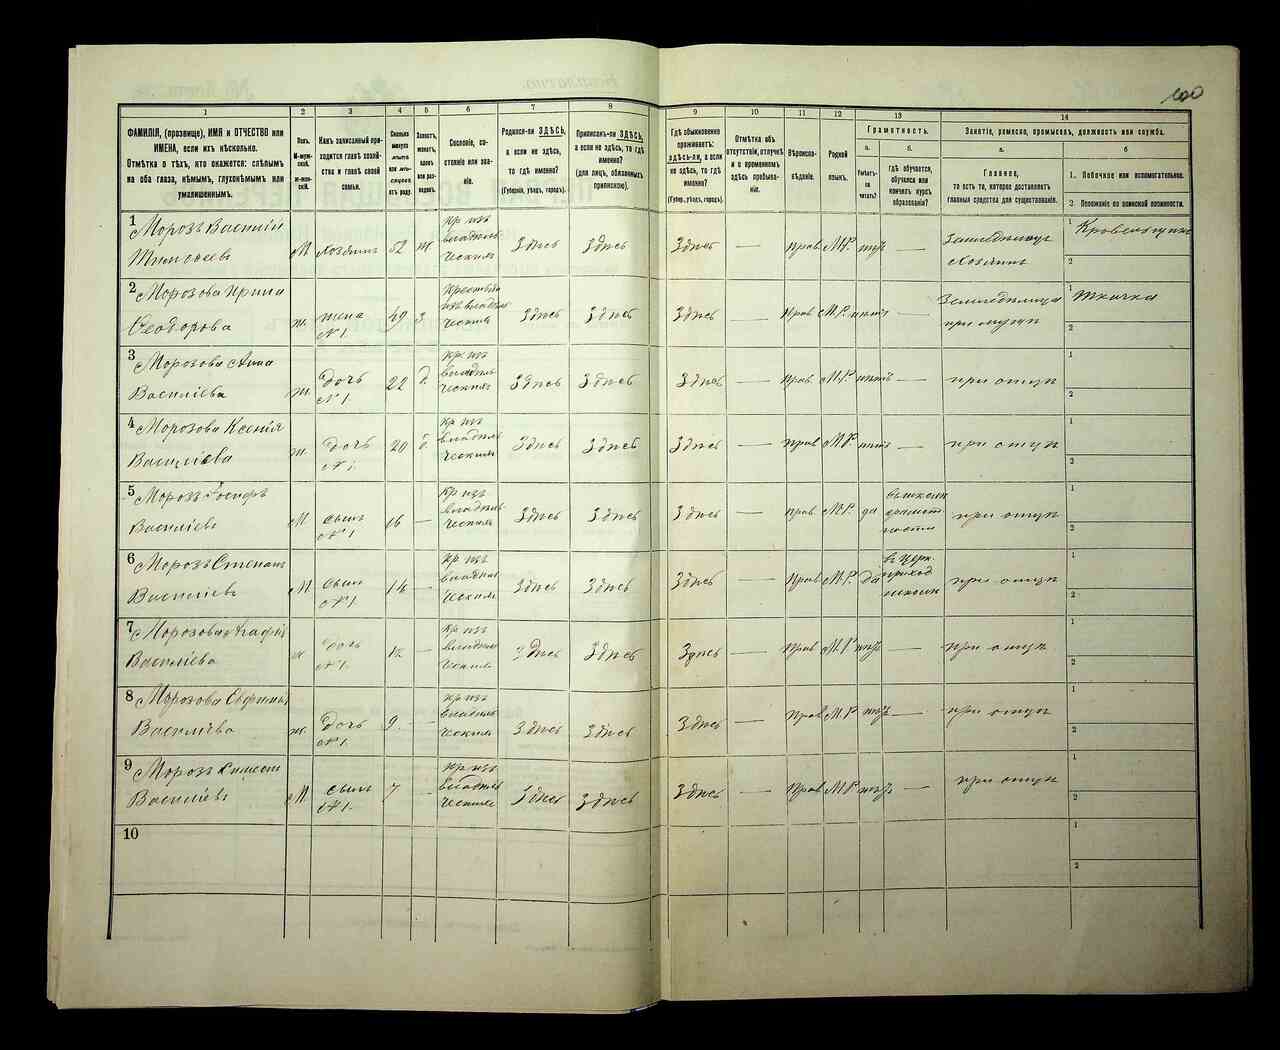 100
1 2 3 4 5 6 7 8 9 10 11 12 13 14
ФАМИЛІЯ, (прозвище), ИМЯ и ОТЧЕСТВО или
ИМЕНА, если ихъ нѣсколько.
Отмѣтка о тѣхъ, кто окажется: слѣпымъ
на оба глаза, нѣмымъ, глухонѣмымъ или
умалишеннымъ.
Полъ.
М-мужской.
Ж-женскій.
Какъ записанный приходится
главѣ хозяйства
и главѣ своей
семьи.
Сколько
минуло
лѣтъ
или мѣсяцевъ
отъ роду.
Холостъ,
женатъ,
вдовъ
или разведенъ.
Сословіе, состояніе
или званіе.
Родился-ли ЗДѢСЬ,
а если не здѣсь,
то гдѣ именно?
(Губернія, уѣздъ, городъ).
Приписанъ-ли ЗДѢСЬ,
а если не здѣсь, то гдѣ
именно?
(для лицъ, обязанныхъ
припискою).
Гдѣ обыкновенно
проживаетъ:
здѣсь-ли, а если
не здѣсь, то гдѣ
именно?
(Губер., уѣздъ, городъ).
Отмѣтка объ
отсутствіи, отлучкѣ
и о временномъ
здѣсь пребываніи.
Вѣроисповѣданіе.
Родной
языкъ.
Грамотность.
а.
Умѣетъ-ли
читать?
б.
гдѣ обучается,
обучался или
кончилъ курсъ
образованія?
Занятіе, ремесло, промыселъ, должность или служба.
а.
Главное,
то есть то, которое доставляетъ
главныя средства для существованія.
б
1. Побочное или вспомогательное.
2. Положеніе по воинской повинности.
1 Морозъ Василій
Тимофеевъ М Хозяинъ 52 ж. Кр изъ владѣльческихъ Здѣсь Здѣсь Здѣсь — Прав М.Р. нѣтъ — Земледѣлецъ Хозяинъ 1
2
2 Морозова Ирина
Феодорова ж. жена №1. 49 з. Здѣсь Здѣсь Здѣсь — Прав М.Р. нѣтъ — Земледѣлица при отцѣ 1 Ткачка
2
3 Морозова Анна
Василіева ж. Дочь №1. 22 д. Кр изъ владѣльческихъ Здѣсь Здѣсь Здѣсь — Прав. М.Р. нѣтъ — при отцѣ 1
2
4 Морозова Ксенія
Василіева ж. дочь №1. 20 д. Кр изъ владѣльческихъ Здѣсь Здѣсь Здѣсь — прав М.Р. нѣтъ — при отцѣ 1
2
5 Морозъ Іосифъ
Василіевъ М сынъ №1 16 — Кр изъ владѣльческихъ Здѣсь Здѣсь Здѣсь — прав. М.Р. да при отцѣ 1
2
6 Морозъ Степанъ
Василіевъ М сынъ №1. 14 — Кр изъ владѣльческихъ Здѣсь Здѣсь Здѣсь — Прав М.Р. Да въ церк. приход школѣ при отцѣ 1
2
7 Морозова Агафія
Василіева ж Дочь №1. 12 — Кр изъ владѣльческихъ Здѣсь Здѣсь Здѣсь — прав М.Р нѣтъ — при отцѣ 1
2
8 Морозова
Василіева ж. Дочь №1. 9. — Кр изъ владѣльческихъ Здѣсь Здѣсь Здѣсь — Прав М.Р нѣтъ — при отцѣ 1
2
9 Морозъ
Василіевъ М сынъ №1. 7 — Кр изъ владѣльческихъ Здѣсь Здѣсь Здѣсь — Прав М.Р нѣтъ — при отцѣ 1
2
10 1
2